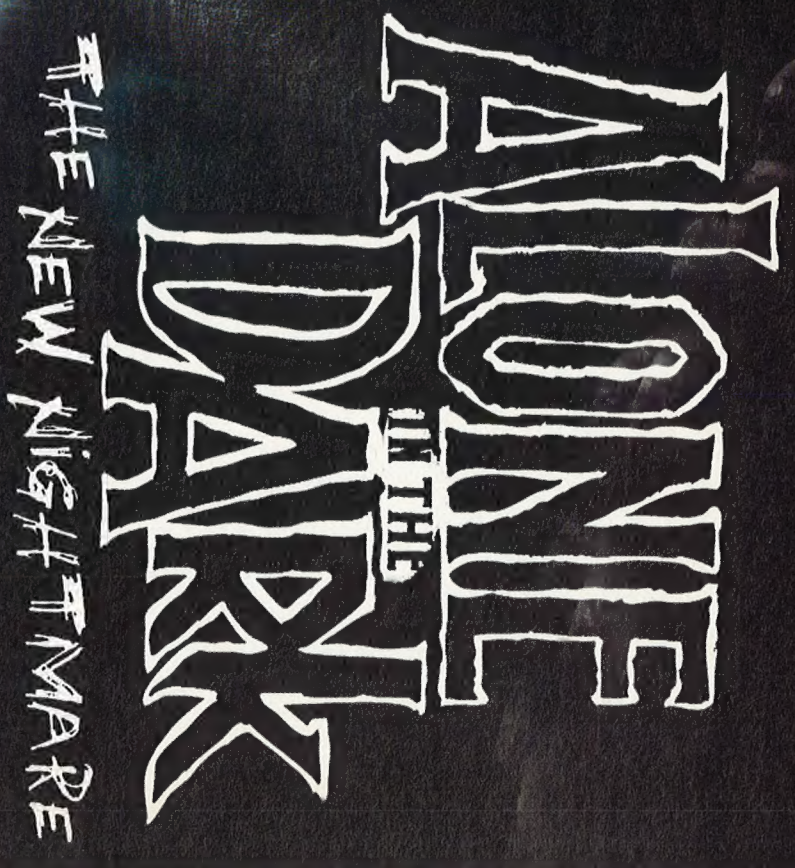 ALONE
IN THE
DARK
THE NEW NIGHTMARE